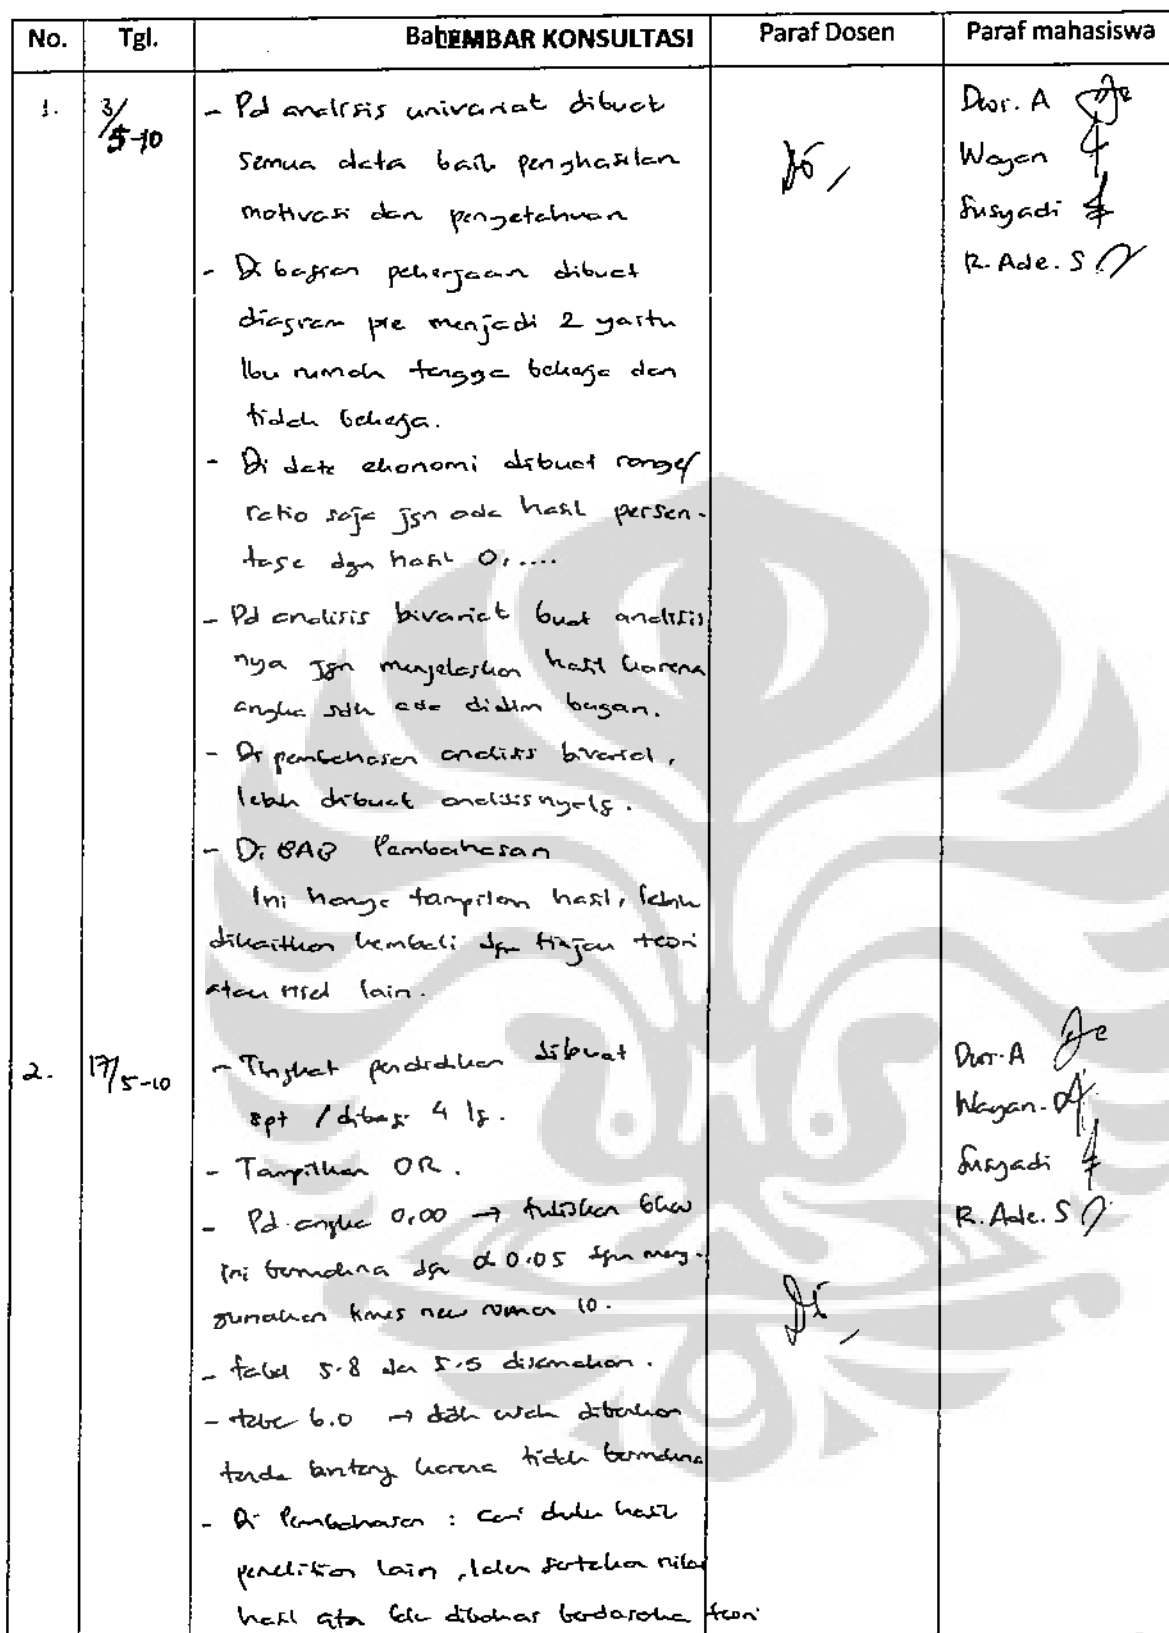 LEMBAR KONSULTASI
No. Tgl. Bahasan Paraf Dosen Paraf mahasiswa
1. 3/5-10 - Pd analisis univariat dibuat Dwi. A
semua data baik penghasilan Wayan
motivasi dan pengetahuan Susyadi
- Di bagian pekerjaan dibuat R. Ade. S
diagram pie menjadi 2 yaitu
Ibu rumah tangga bekerja dan
tidak bekerja.
- Di data ekonomi dibuat range/
ratio saja jgn ada hasil persen-
tase dgn hasil 0,....
- Pd analisis bivariat buat analisis
nya jgn menjelaskan hasil karena
angka sdh ada didlm bagan.
- Di pembahasan analisis bivariat,
lebih dibuat analisisnya lg.
- Di BAB Pembahasan
Ini hanya tampilan hasil, lebih
dikaitkan kembali dgn tinjau teori
atau riset lain.
2. 17/5-10 - Tingkat pendidikan dibuat Dwi. A
spt / dibagi 4 lg. Wayan.
- Tampilkan OR. Susyadi
- Pd. angka 0,00 → tuliskan bhw R. Ade. S
ini bermakna dgn α 0.05 dgn meng-
gunakan times new roman 10.
- tabel 5.8 dan 5.5 disamakan.
- tabel 6.0 → tdk usah diberikan
tanda bintang karena tidak bermakna
- Di Pembahasan : cari dulu hasil
penelitian lain, lalu sertakan nilai
hasil dibahas berdasarkan teori